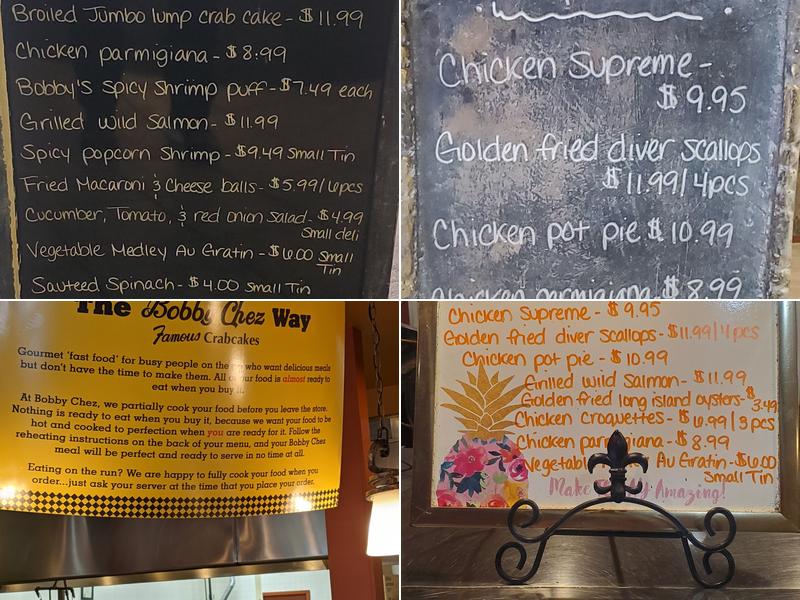 Broiled Jumbo lump crab cake - $11.99
Chicken parmigiana - $8.99
Bobby's Spicy Shrimp puff - $7.49 each
Grilled wild Salmon - $11.99
Spicy popcorn Shrimp - $9.49 Small Tin
Fried Macaroni & Cheese balls - $5.99/6pcs
Cucumber, Tomato, & red onion salad - $4.99
Small deli
Vegetable Medley Au Gratin - $6.00 Small
Tin
Sauteed Spinach - $4.00 Small Tin
Chicken Supreme -
$9.95
Golden fried diver scallops
$11.99/4pcs
Chicken pot pie $10.99
Chicken parmigiana $8.99
The Bobby Chez Way
Famous Crabcakes
Gourmet 'fast food' for busy people on the go who want delicious meals
but don't have the time to make them. All of our food is almost ready to
eat when you buy it.
At Bobby Chez, we partially cook your food before you leave the store.
Nothing is ready to eat when you buy it, because we want your food to be
hot and cooked to perfection when you are ready for it. Follow the
reheating instructions on the back of your menu, and your Bobby Chez
meal will be perfect and ready to serve in no time at all.
Eating on the run? We are happy to fully cook your food when you
order...just ask your server at the time that you place your order.
Chicken Supreme - $9.95
Golden fried diver scallops - $11.99/4pcs
Chicken pot pie - $10.99
Grilled wild Salmon - $11.99
Golden fried long island oysters - $3.49
Chicken Croquettes - $6.99/3pcs
Chicken parmigiana - $8.99
Vegetable Au Gratin - $6.00
Small Tin
Make Amazing!